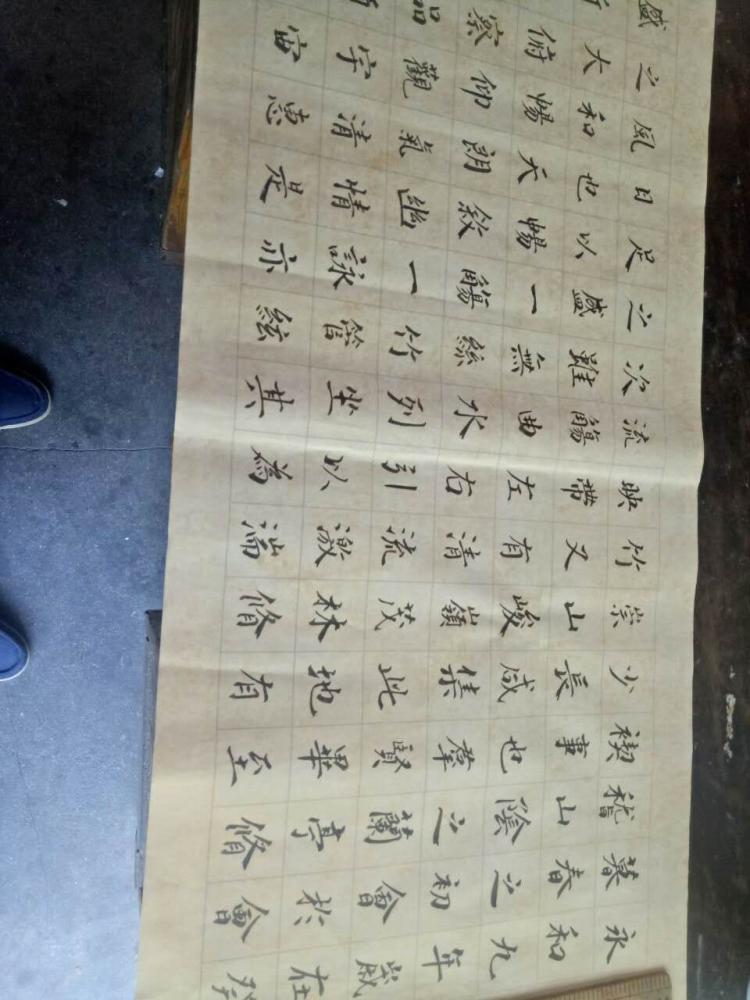 永和九年歲在癸
暮春之初會於會
稽山陰之蘭亭脩
禊事也羣賢畢至
少長咸集此地有
崇山峻嶺茂林脩
竹又有清流激湍
映帶左右引以為
流觴曲水列坐其
次雖無絲竹管絃
之盛一觴一詠亦
足以暢敘幽情是
日也天朗氣清惠
風和暢仰觀宇宙
之大俯察品
盛